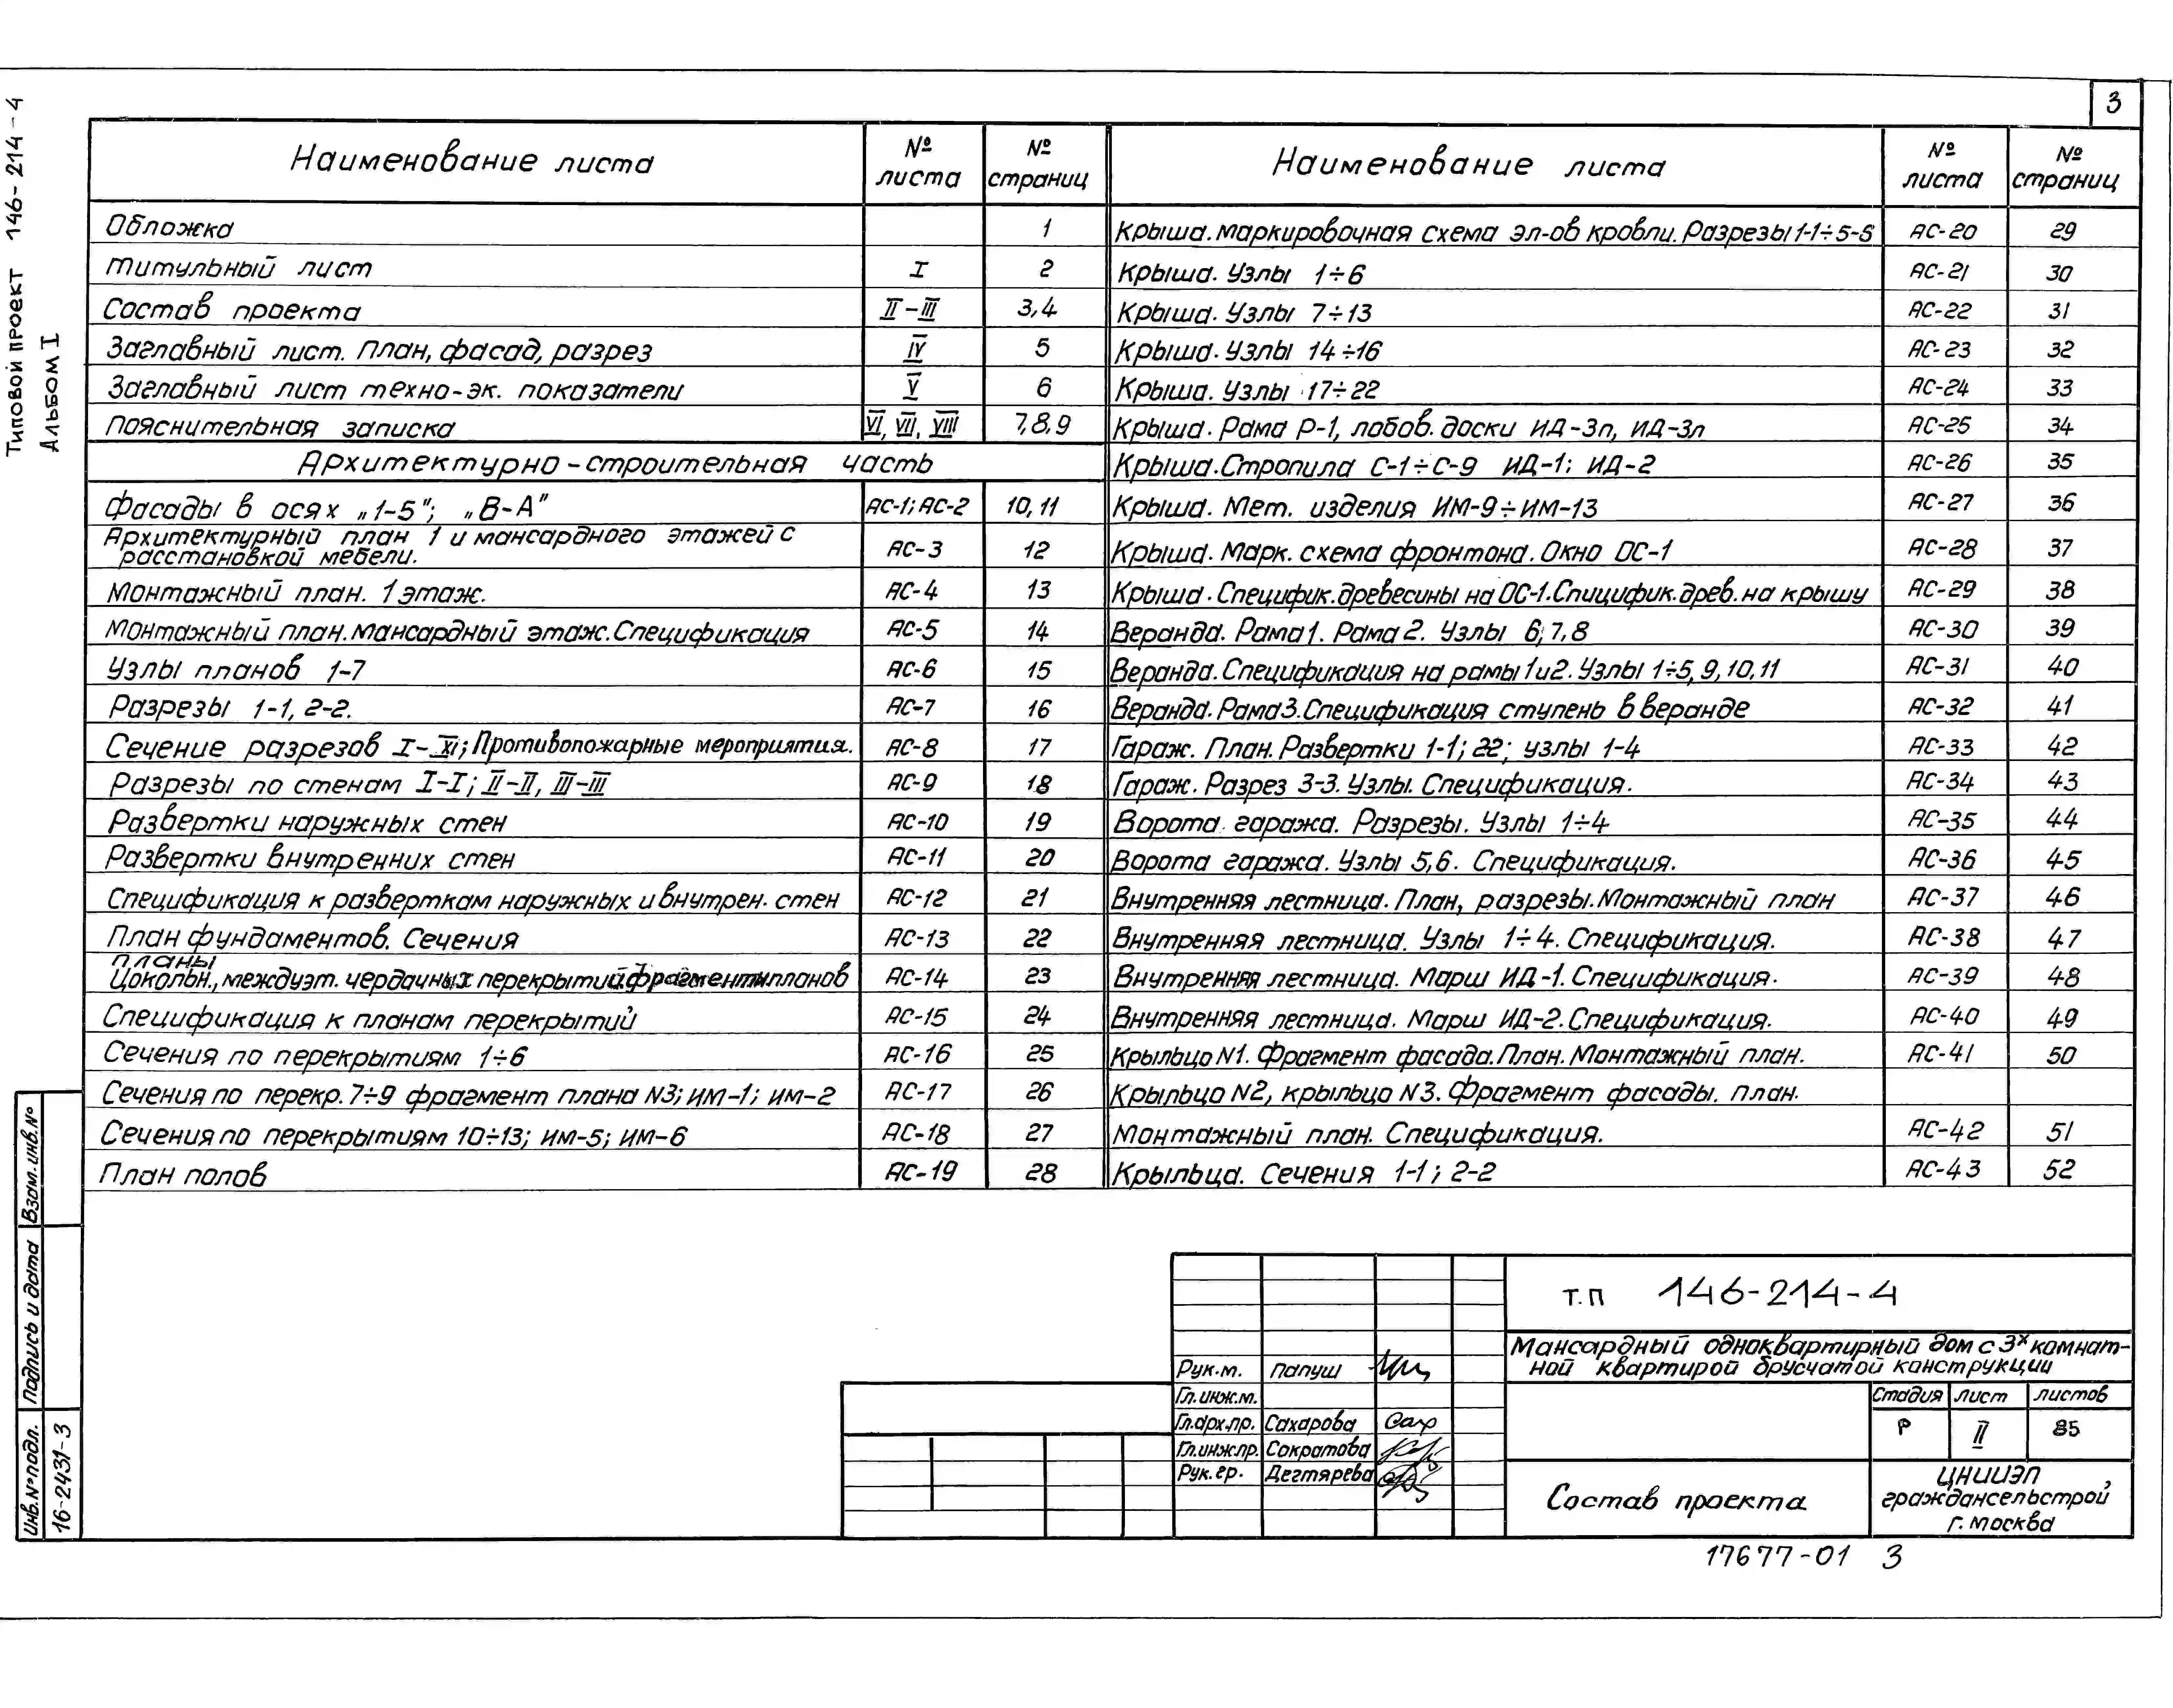 3
Типовой проект 146-214-4
Альбом I
Наименование листа № листа № страниц
Обложка 1
Титульный лист I 2
Состав проекта II-III 3,4
Заглавный лист. План, фасад, разрез IV 5
Заглавный лист техно-эк. показатели V 6
Пояснительная записка VI, VII, VIII 7,8,9
Архитектурно-строительная часть
Фасады в осях „1-5"; „В-А" АС-1; АС-2 10, 11
Архитектурный план 1 и мансардного этажей с
расстановкой мебели. АС-3 12
Монтажный план. 1 этаж. АС-4 13
Монтажный план. мансардный этаж. Спецификация АС-5 14
Узлы планов 1-7 АС-6 15
Разрезы 1-1, 2-2. АС-7 16
Сечение разрезов I-XI; Противопожарные мероприятия. АС-8 17
Разрезы по стенам I-I; II-II, III-III АС-9 18
Развертки наружных стен АС-10 19
Развертки внутренних стен АС-11 20
Спецификация к разверткам наружных и внутрен. стен АС-12 21
План фундаментов. Сечения АС-13 22
планы
Цокольн., междуэт. чердачных перекрытий фрагменты планов АС-14 23
Спецификация к планам перекрытий АС-15 24
Сечения по перекрытиям 1÷6 АС-16 25
Сечения по перекр. 7÷9 фрагмент плана N3; ИМ-1; ИМ-2 АС-17 26
Сечения по перекрытиям 10÷13; ИМ-5; ИМ-6 АС-18 27
План полов АС-19 28
Наименование листа № листа № страниц
Крыша. маркировочная схема эл-ов кровли. Разрезы 1-1÷5-5 АС-20 29
Крыша. Узлы 1÷6 АС-21 30
Крыша. Узлы 7÷13 АС-22 31
Крыша. Узлы 14÷16 АС-23 32
Крыша. Узлы 17÷22 АС-24 33
Крыша. Рама Р-1, лобов. доски ИД-3п, ИД-3л АС-25 34
Крыша. Стропила С-1÷С-9 ИД-1; ИД-2 АС-26 35
Крыша. Мет. изделия ИМ-9÷ИМ-13 АС-27 36
Крыша. Марк. схема фронтона. Окно ОС-1 АС-28 37
Крыша. Специфик. древесины на ОС-1. Спицифик. древ. на крышу АС-29 38
Веранда. Рама 1. Рама 2. Узлы 6, 7, 8 АС-30 39
Веранда. Спецификация на рамы 1 и 2. Узлы 1÷5, 9, 10, 11 АС-31 40
Веранда. Рама 3. Спецификация ступень в веранде АС-32 41
Гараж. План. Развертки 1-1; 22; узлы 1-4 АС-33 42
Гараж. Разрез 3-3. Узлы. Спецификация. АС-34 43
Ворота гаража. Разрезы. Узлы 1÷4 АС-35 44
Ворота гаража. Узлы 5,6. Спецификация. АС-36 45
Внутренняя лестница. План, разрезы. Монтажный план АС-37 46
Внутренняя лестница. Узлы 1÷4. Спецификация. АС-38 47
Внутренняя лестница. Марш ИД-1. Спецификация. АС-39 48
Внутренняя лестница. Марш ИД-2. Спецификация. АС-40 49
Крыльцо N1. Фрагмент фасада. План. Монтажный план. АС-41 50
Крыльцо N2, крыльцо N3. Фрагмент фасады. План.
Монтажный план. Спецификация. АС-42 51
Крыльца. Сечения 1-1; 2-2 АС-43 52
Взам. инв. №
Подпись и дата
Инв. № подл.
16-2431-3
Т.П 146-214-4
Мансардный одноквартирный дом с 3х комнат-
ной квартирой брусчатой конструкции
Рук.м. Папуш
Гл.инж.м.
Гл.арх.пр. Сахарова Сах
Гл.инж.пр. Сократова
Рук.гр. Дегтярева
Стадия лист листов
Р II 85
Состав проекта
ЦНИИЭП
граждансельстрой,
г. Москва
17677-01 3